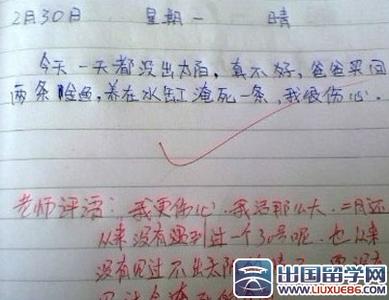 2月30日 星期一 晴
今天一天都没出太阳,真不好,爸爸买回
两条 鱼,养在水缸淹死一条,我很伤心.
老师评语:我更伤心.我活那么大.二月还
从来没有遇到过一个30号呢.也从来
没有见过不出太阳
出国留学网
www.LIUXUE86.com